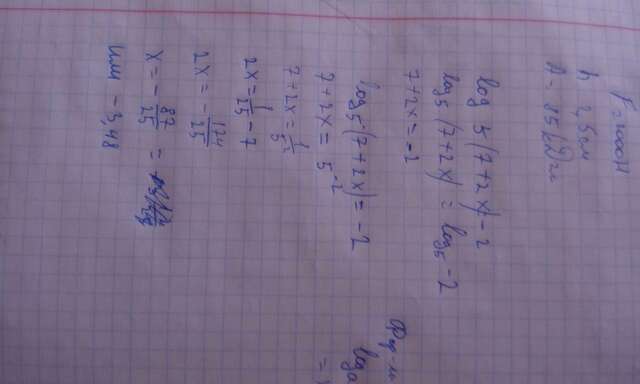 F = 1000 Н
h 2,5 см
A -
log 5 (7+2x) - 2
log₅ (7+2x) = log₅ -2
7+2x = -2
log₅ (7+2x) = -2
7+2x = 5⁻²
7+2x = 1/5²
2x = 1/25 - 7
2x = - 174/25
x = - 87/25 =
или -3,48
log a
=